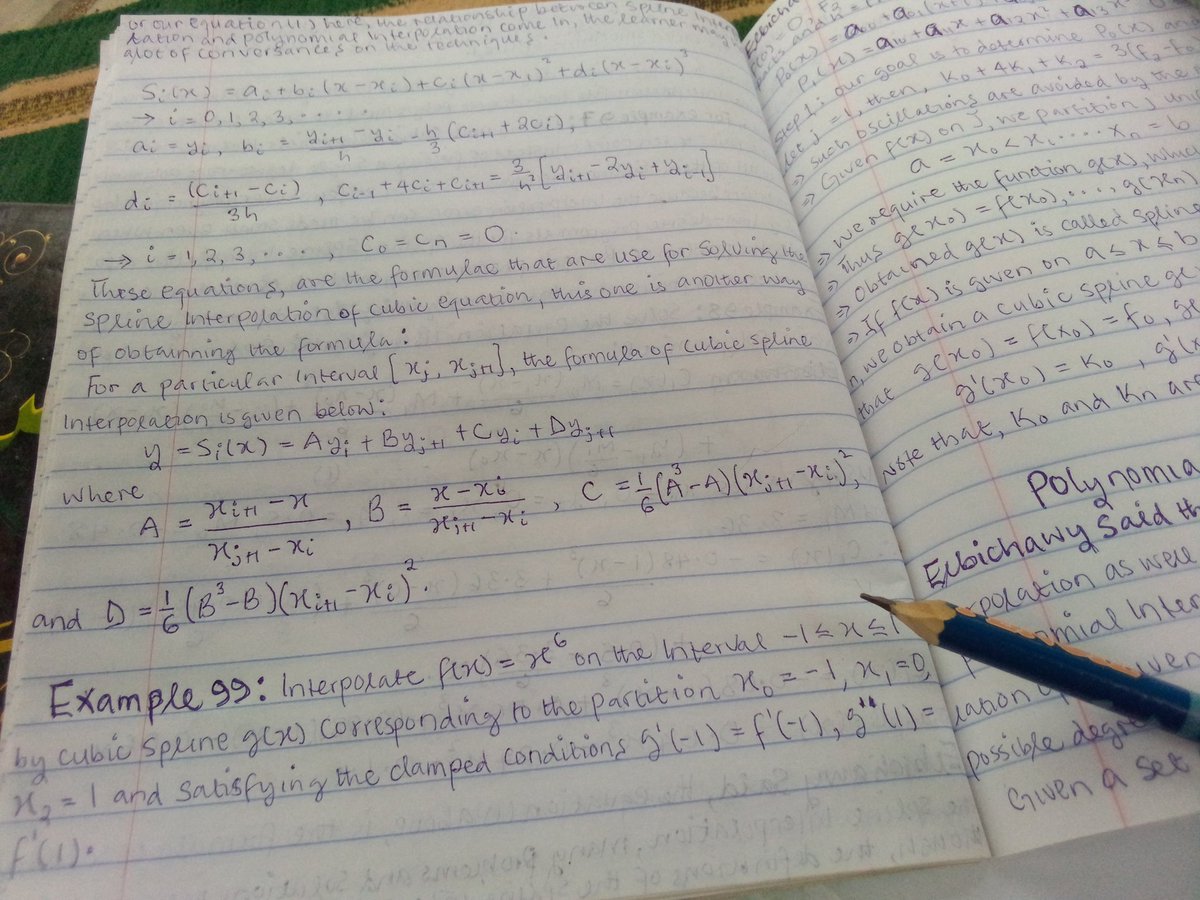 or our equation (1) here, the relationship between spline
lation and polynomial interpolation come in, the learner may
alot of conversances on the techniques.
Si(x) = ai + bi(x-xi) + ci(x-xi)² + di(x-xi)³
→ i = 0, 1, 2, 3, . . . .
ai = yi, bi = (yi+1 - yi)/h - h/3 (Ci+1 + 2Ci),
di = (Ci+1 - Ci)/3h, Ci-1 + 4Ci + Ci+1 = 3/h² [yi+1 - 2yi + yi-1]
→ i = 1, 2, 3, . . . . , C0 = Cn = 0.
These equations, are the formulae that are use for solving the
spline interpolation of cubic equation, this one is another way
of obtainning the formula:
For a particular interval [xj, xj+1], the formula of cubic spline
Interpolation is given below:
y = Si(x) = Ayi + Byj+1 + Cyi + Dyj+1
where
A = (xi+1 - x)/(xj+1 - xi), B = (x - xi)/(xj+1 - xi), C = 1/6 (A³ - A)(xj+1 - xi)²,
and D = 1/6 (B³ - B)(xi+1 - xi)².
Example 99: Interpolate f(x) = x⁶ on the Interval -1 ≤ x ≤ 1
by cubic spline g(x) corresponding to the partition x0 = -1, x1 = 0,
x2 = 1 and satisfying the clamped conditions g'(-1) = f'(-1), g''(1) =
f'(1).
P0(x) = a00 + a01(x
P1(x) = a10 + a11x + a12x² + a13x³
Step 1: our goal is to determine P0(x) and
let j = 1, then, K0 + 4K1 + K2 = 3(f2 - f0
⇒ such oscillations are avoided by the
⇒ Given f(x) on J, we partition J
a = x0 < x1 . . . . xn = b
⇒ we require the function g(x), which
⇒ Thus g(x0) = f(x0), . . . ., g(xn)
⇒ Obtained g(x) is called spline
⇒ If f(x) is given on a ≤ x ≤ b
n, we obtain a cubic spline g(
that g(x0) = f(x0) = f0, g(
g'(x0) = K0, g'(x
Note that, K0 and Kn are
Polynomia
Elbichawy Said th
polation as well
nomial Inter
lation
possible degre
Given a set